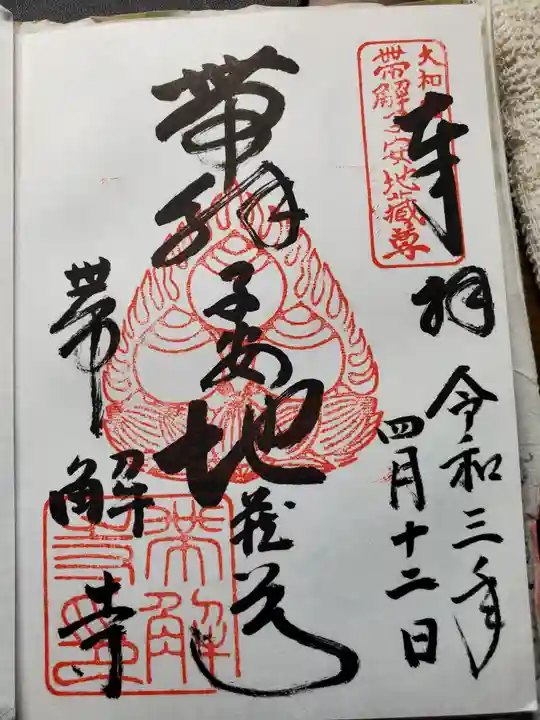 奉拝
令和三年
四月十二日
大和
帯解子安地蔵尊
帯解子安地蔵尊
帯解寺
帯解寺印